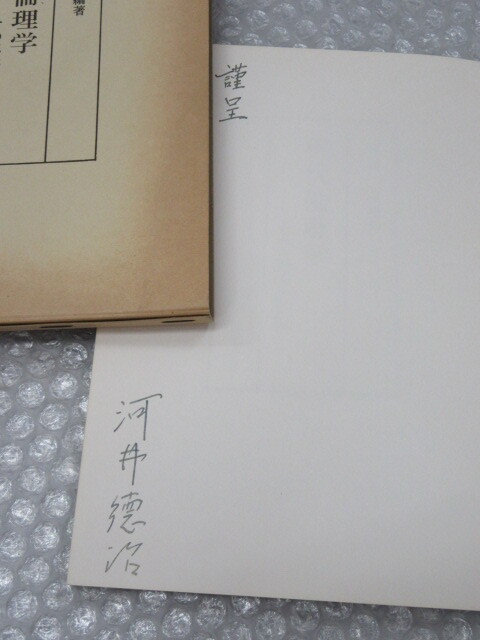 編著
倫理学
謹呈
河井徳治